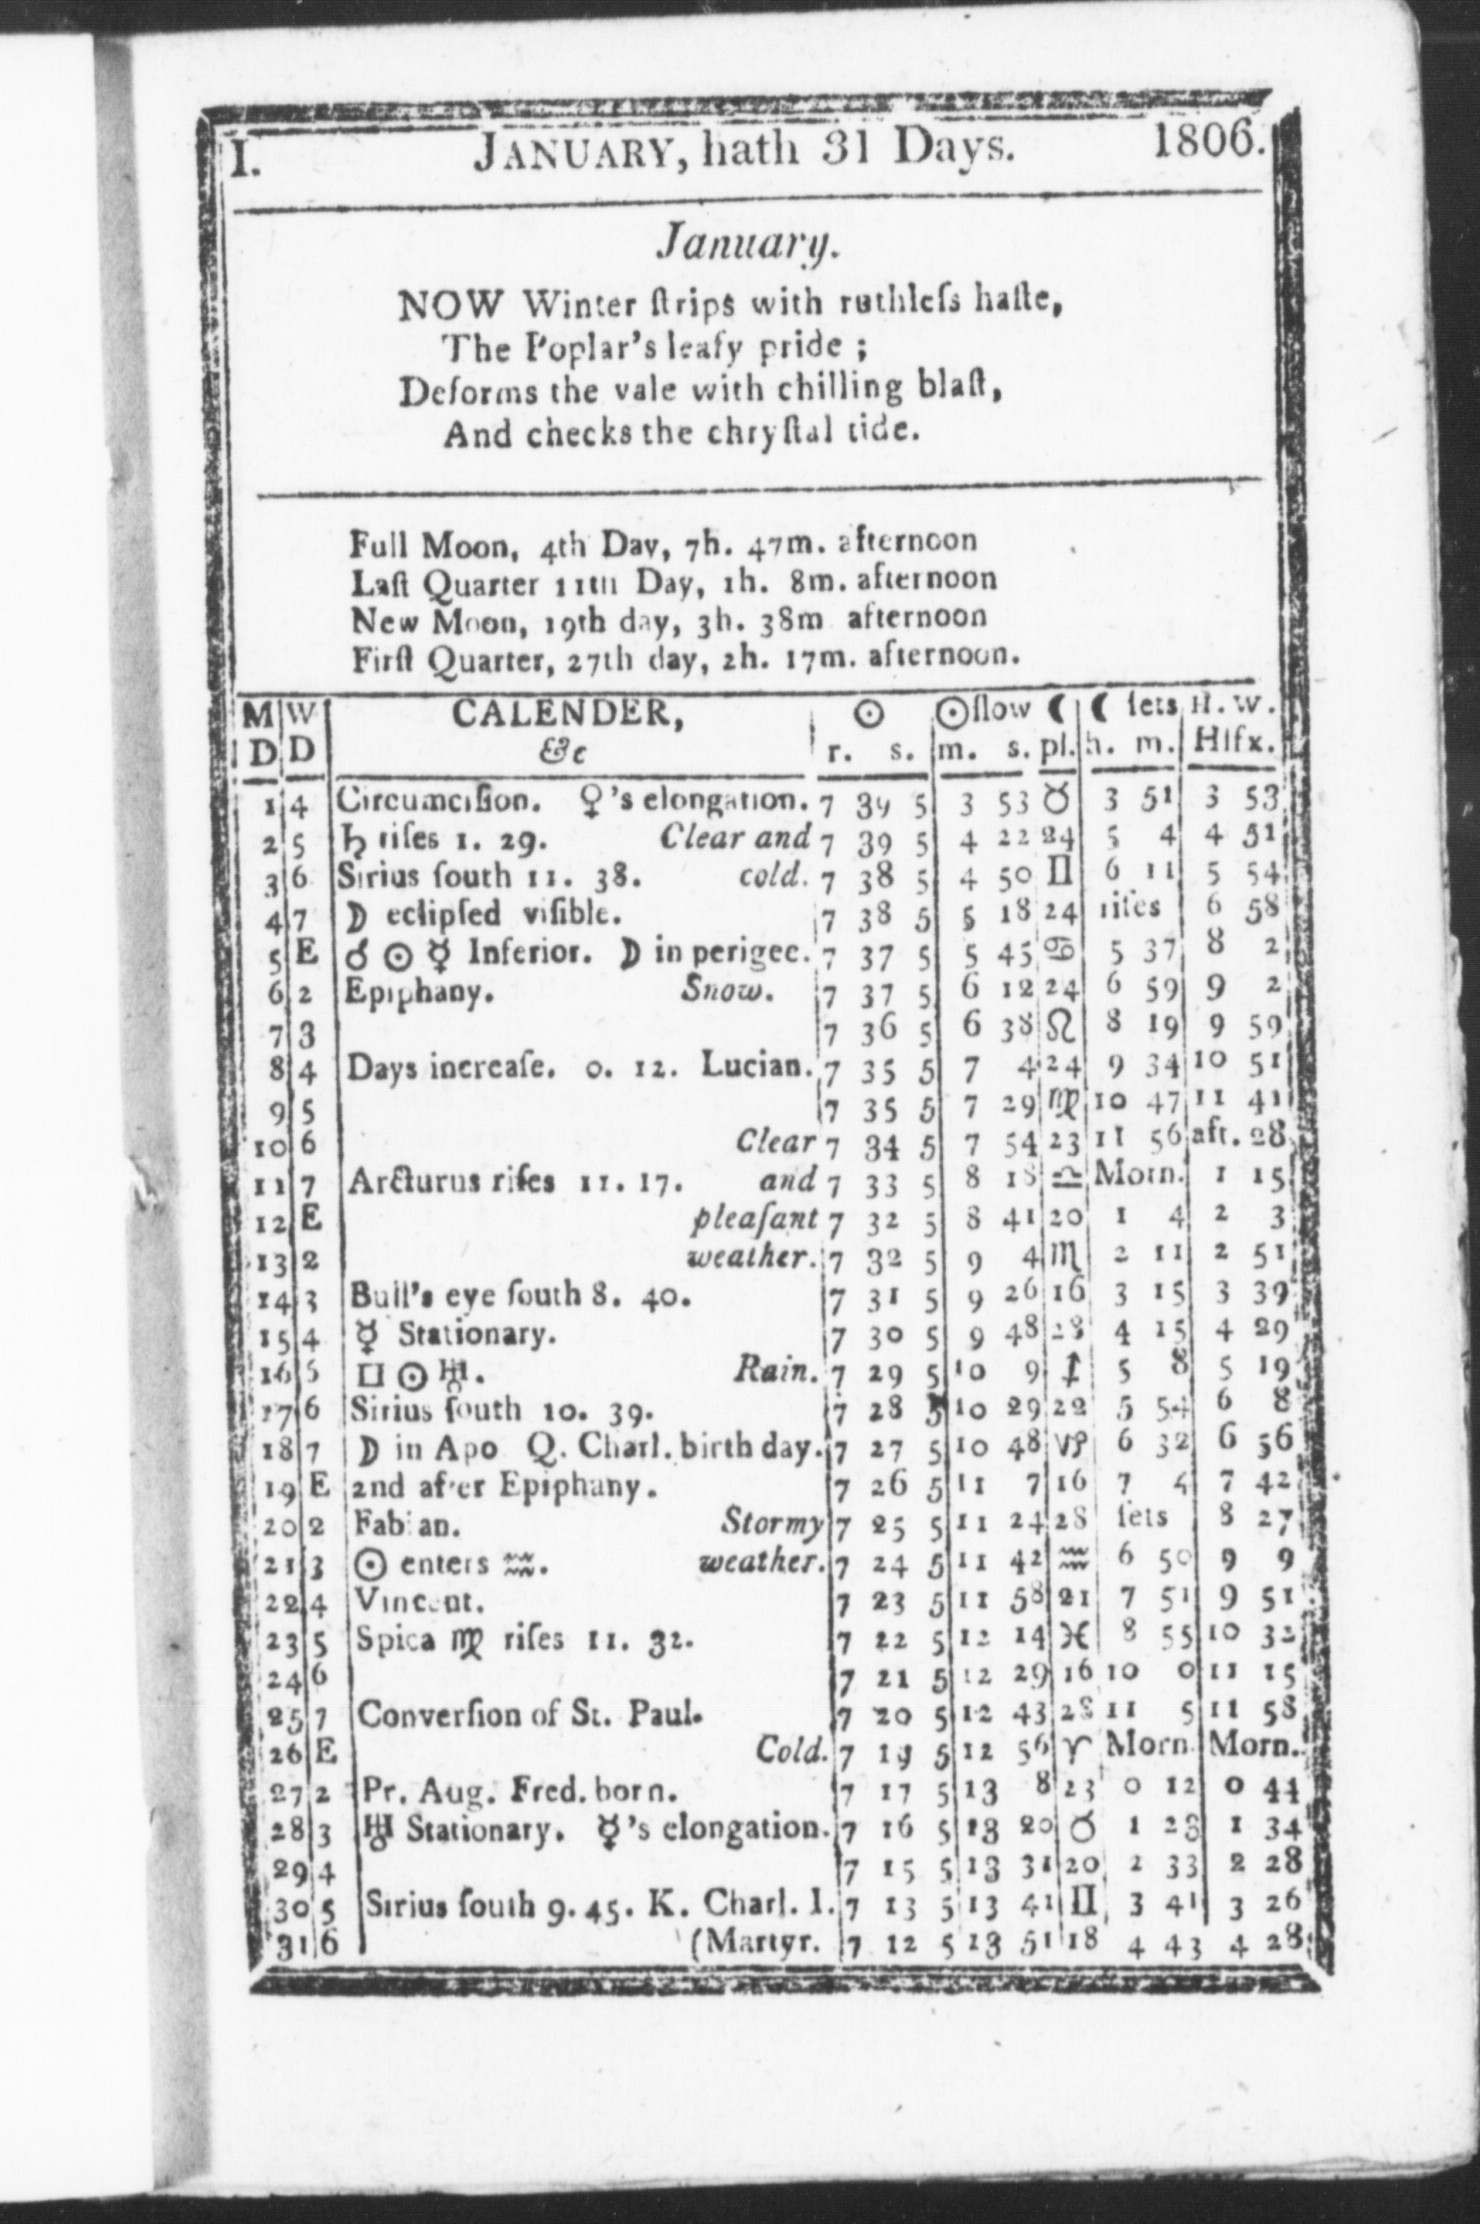 I. JANUARY, hath 31 Days. 1806.
January.
NOW Winter ſtrips with ruthleſs haſte,
The Poplar's leafy pride ;
Deforms the vale with chilling blaſt,
And checks the chryſtal tide.
Full Moon, 4th Day, 7h. 47m. afternoon
Laſt Quarter 11th Day, 1h. 8m. afternoon
New Moon, 19th day, 3h. 38m afternoon
Firſt Quarter, 27th day, 2h. 17m. afternoon.
M W CALENDER, ☉ ☉ſlow ☾ ☾ ſets H. W.
D D &c r. s. m. s. pl. h. m. Hlfx.
1 4 Circumciſion. ♀'s elongation. 7 39 5 3 53 ♉ 3 51 3 53
2 5 ♄ riſes 1. 29. Clear and 7 39 5 4 22 24 5 4 4 51
3 6 Sirius ſouth 11. 38. cold. 7 38 5 4 50 ♊ 6 11 5 54
4 7 ☽ eclipſed viſible. 7 38 5 5 18 24 riſes 6 58
5 E ☌ ☉ ☿ Inferior. ☽ in perigee. 7 37 5 5 45 ♋ 5 37 8 2
6 2 Epiphany. Snow. 7 37 5 6 12 24 6 59 9 2
7 3 7 36 5 6 38 ♌ 8 19 9 59
8 4 Days increaſe. 0. 12. Lucian. 7 35 5 7 4 24 9 34 10 51
9 5 7 35 5 7 29 ♍ 10 47 11 41
10 6 Clear 7 34 5 7 54 23 11 56 aft. 28
11 7 Arcturus riſes 11. 17. and 7 33 5 8 18 ♎ Morn. 1 15
12 E pleaſant 7 32 5 8 41 20 1 4 2 3
13 2 weather. 7 32 5 9 4 ♏ 2 11 2 51
14 3 Bull's eye ſouth 8. 40. 7 31 5 9 26 16 3 15 3 39
15 4 ☿ Stationary. 7 30 5 9 48 28 4 15 4 29
16 5 □ ☉ ♅. Rain. 7 29 5 10 9 ♐ 5 8 5 19
17 6 Sirius ſouth 10. 39. 7 28 5 10 29 22 5 54 6 8
18 7 ☽ in Apo Q. Charl. birth day. 7 27 5 10 48 ♑ 6 32 6 56
19 E 2nd after Epiphany. 7 26 5 11 7 16 7 4 7 42
20 2 Fabian. Stormy 7 25 5 11 24 28 ſets 8 27
21 3 ☉ enters ♒. weather. 7 24 5 11 42 ♒ 6 50 9 9
22 4 Vincent. 7 23 5 11 58 21 7 51 9 51
23 5 Spica ♍ riſes 11. 32. 7 22 5 12 14 ♓ 8 55 10 32
24 6 7 21 5 12 29 16 10 0 11 15
25 7 Converſion of St. Paul. 7 20 5 12 43 28 11 5 11 58
26 E Cold. 7 19 5 12 56 ♈ Morn. Morn.
27 2 Pr. Aug. Fred. born. 7 17 5 13 8 23 0 12 0 44
28 3 ♅ Stationary. ☿'s elongation. 7 16 5 13 20 ♉ 1 23 1 34
29 4 7 15 5 13 31 20 2 33 2 28
30 5 Sirius ſouth 9. 45. K. Charl. I. 7 13 5 13 41 ♊ 3 41 3 26
31 6 (Martyr. 7 12 5 13 51 18 4 43 4 28